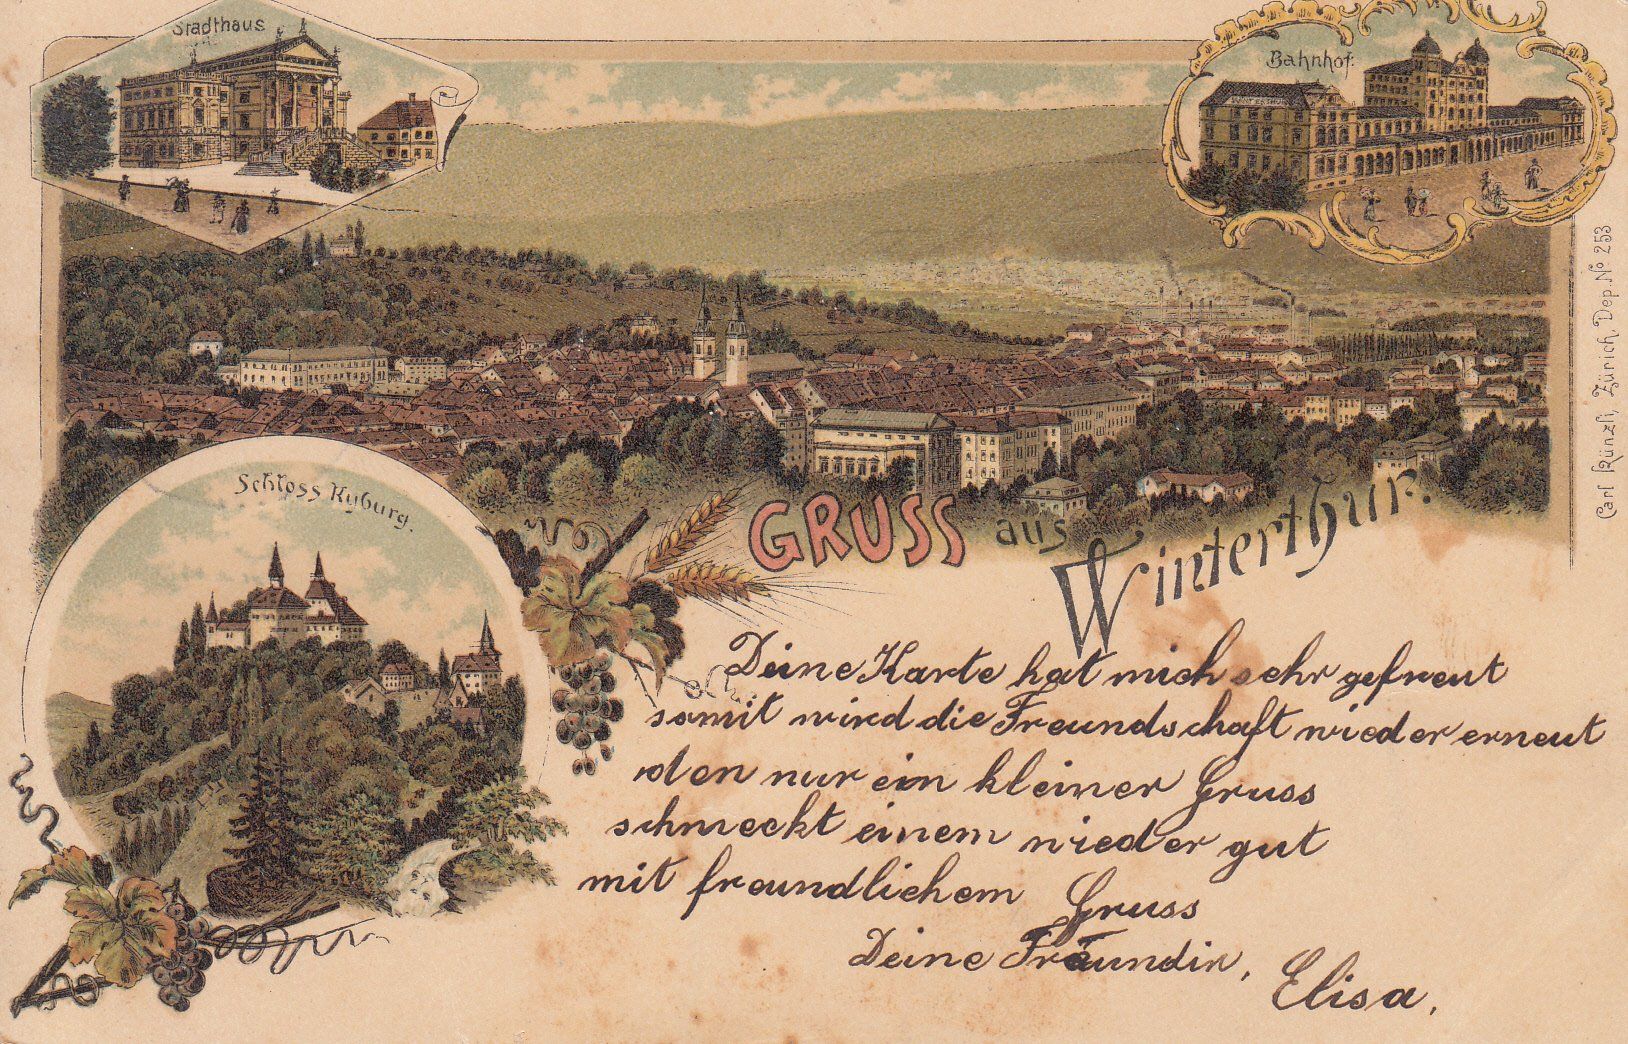 Stadthaus
Bahnhof.
WINTERTHUR
Schloss Kyburg.
GRUSS aus Winterthur.
Carl Künzli, Zürich, Dep. No 253
Deine Karte hat mich sehr gefreut
somit wird die Freundschaft wieder erneut
den nur ein kleiner Gruss
schmeckt einem wieder gut
mit freundlichem Gruss
Deine Freundin,
Elisa,